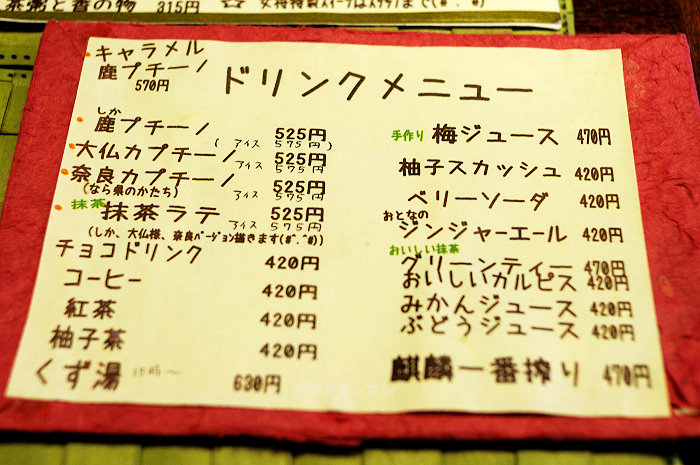 茶粥と香の物 315円
キャラメル
鹿プチーノ
570円
ドリンクメニュー
しか
鹿プチーノ 525円
(アイス 575円)
大仏カプチーノ 525円
アイス 575円
奈良カプチーノ 525円
(なら県のかたち) アイス 575円
抹茶
抹茶ラテ 525円
アイス 575円
(しか、大仏様、奈良バージョン描きます(#^.^#))
チョコドリンク 420円
コーヒー 420円
紅茶 420円
柚子茶 420円
くず湯 630円
手作り 梅ジュース 470円
柚子スカッシュ 420円
ベリーソーダ 420円
おとなの
ジンジャーエール 420円
おいしい抹茶
グリーンティー 470円
おいしいカルピス 420円
みかんジュース 420円
ぶどうジュース 420円
麒麟一番搾り 470円